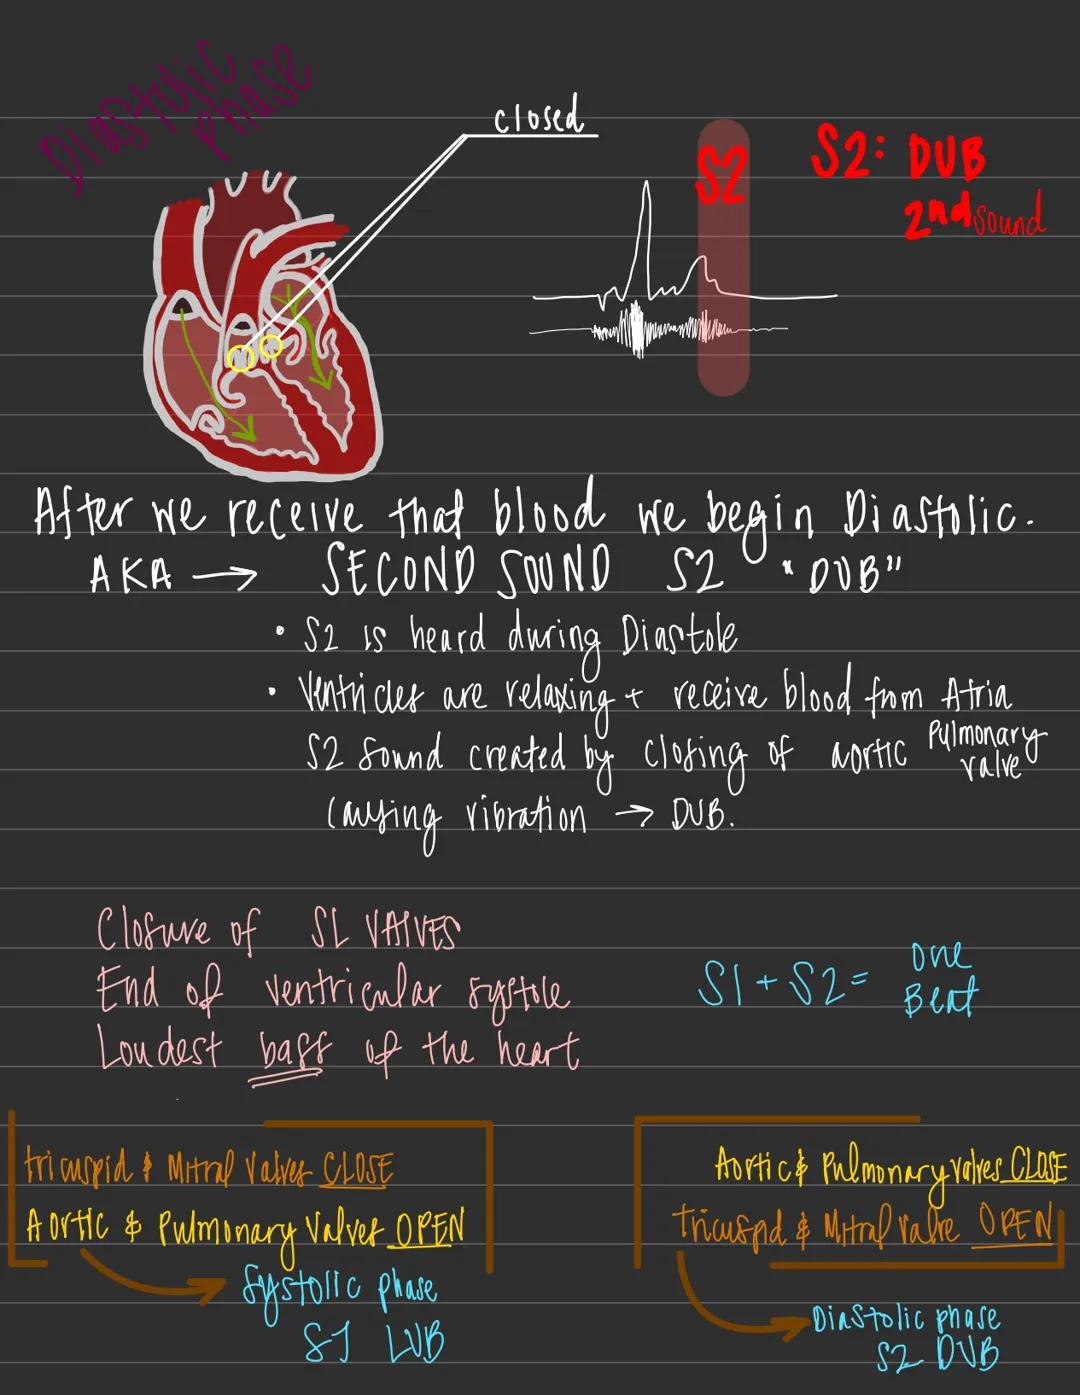 Diastolic
phase
closed
S2
S2: DUB
2nd Sound
After we receive that blood we begin Diastolic.
AKA → SECOND SOUND S2 "DUB"
• S2 is heard during Diastole
• Ventricles are relaxing + receive blood from Atria
S2 Sound created by closing of aortic Pulmonary valve
causing vibration → DUB.
Closure of SL VALVES
End of ventricular systole
Loudest base of the heart
S1 + S2 = One Beat
tricuspid & Mitral Valves CLOSE
Aortic & Pulmonary Valves OPEN
Systolic phase
S1 LUB
Aortic & Pulmonary valves CLOSE
Tricuspid & Mitral valve OPEN
Diastolic phase
S2 DUB